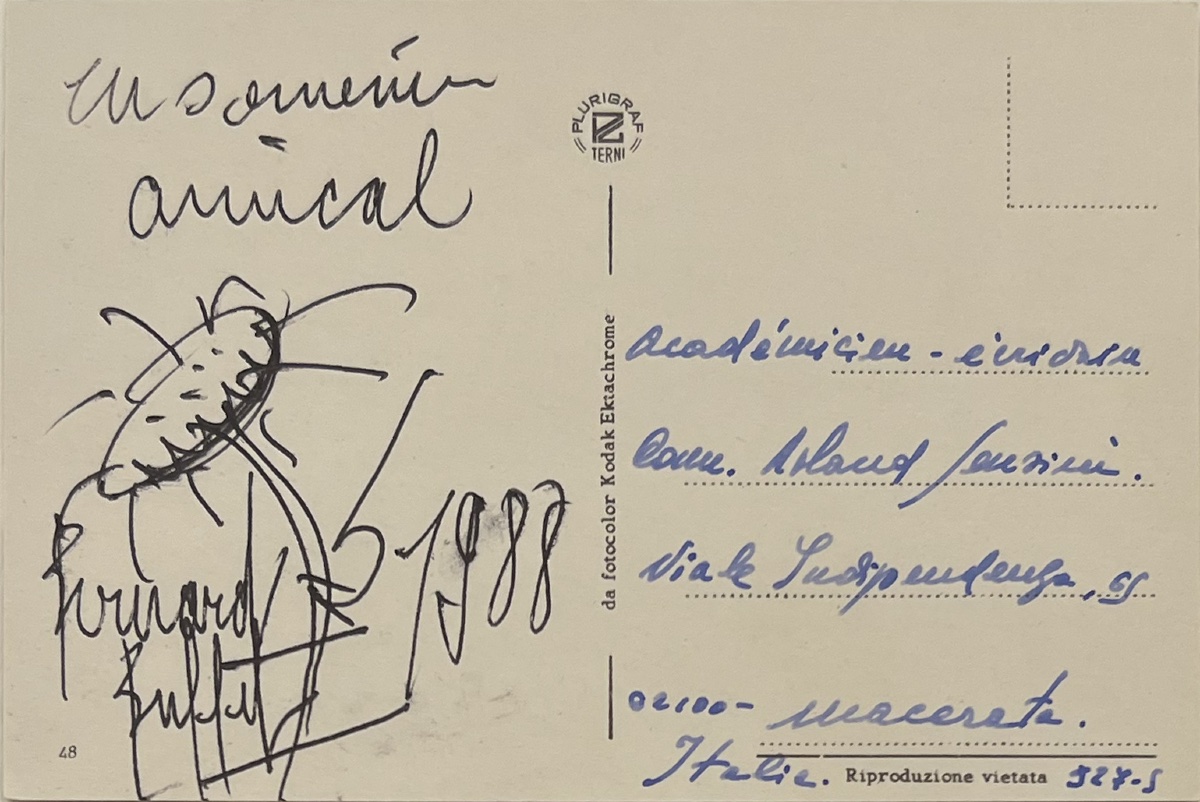 en souvenir
amical
Bernard
Buffet
5 1988
48
PLURIGRAF
TERNI
da fotocolor Kodak Ektachrome
Académicien -
Comm. Roland Sensini.
Viale Indipendenza,
02100 - Macerata.
Italie.
Riproduzione vietata